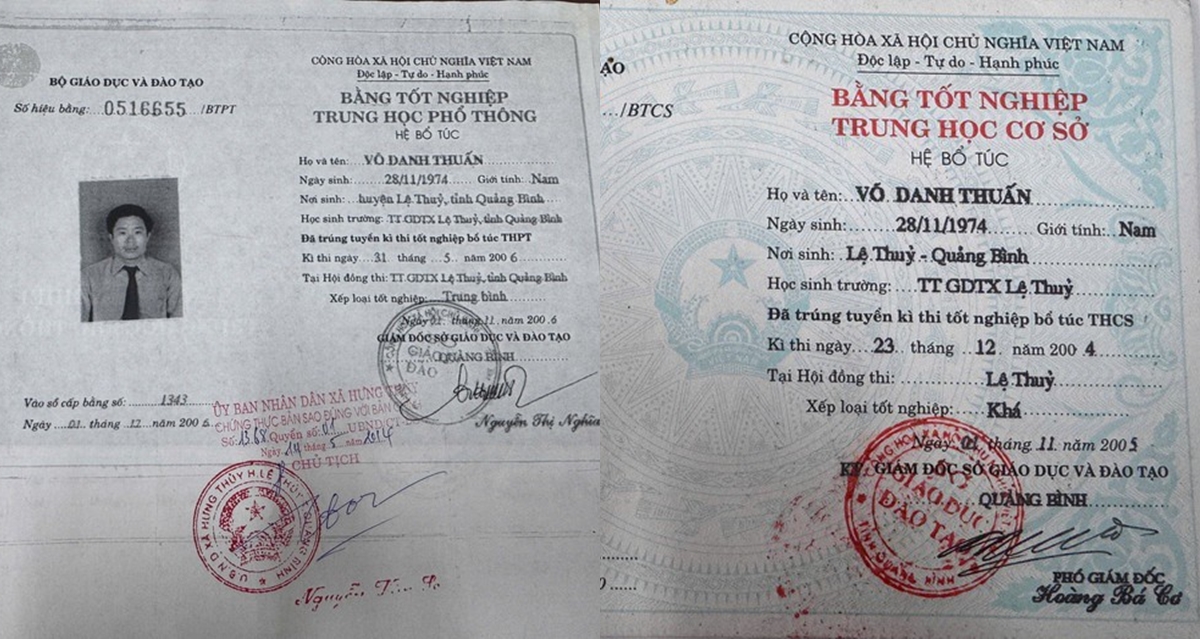 BỘ GIÁO DỤC VÀ ĐÀO TẠO
Số hiệu bằng:....0516655..../BTPT
CỘNG HÒA XÃ HỘI CHỦ NGHĨA VIỆT NAM
Độc lập - Tự do - Hạnh phúc
BẰNG TỐT NGHIỆP
TRUNG HỌC PHỔ THÔNG
HỆ BỔ TÚC
Họ và tên:....VÕ DANH THUẤN
Ngày sinh:......28/11/1974...... Giới tính:..Nam
Nơi sinh:...huyện Lệ Thuỷ, tỉnh Quảng Bình
Học sinh trường:...TT GDTX Lệ Thuỷ, tỉnh Quảng Bình
Đã trúng tuyển kì thi tốt nghiệp bổ túc THPT
Kì thi ngày....31... tháng ...5... năm 2006
Tại Hội đồng thi: TT GDTX Lệ Thuỷ, tỉnh Quảng Bình
Xếp loại tốt nghiệp:....Trung bình
Ngày 01 tháng 11 năm 2006
GIÁM ĐỐC SỞ GIÁO DỤC VÀ ĐÀO TẠO
QUẢNG BÌNH
GIÁO
ĐÀO
Nguyễn Thị Nghĩa
Vào sổ cấp bằng số:......1343
Ngày ...01... tháng ...12... năm 2006
ỦY BAN NHÂN DÂN XÃ HƯNG THỦY
CHỨNG THỰC BẢN SAO ĐÚNG VỚI BẢN
Số: 1368 Quyển số: 01 UBND/CT-
Ngày 14 tháng 5 năm 2014
CHỦ TỊCH
U.B.N.D XÃ HƯNG THỦY H.LỆ THỦY T.QUẢNG BÌNH
ẠO
..../BTCS
CỘNG HÒA XÃ HỘI CHỦ NGHĨA VIỆT NAM
Độc lập - Tự do - Hạnh phúc
BẰNG TỐT NGHIỆP
TRUNG HỌC CƠ SỞ
HỆ BỔ TÚC
Họ và tên:...VÕ DANH THUẤN
Ngày sinh:........28/11/1974....... Giới tính:..Nam
Nơi sinh:..Lệ Thuỷ - Quảng Bình
Học sinh trường:....TT GDTX Lệ Thuỷ
Đã trúng tuyển kì thi tốt nghiệp bổ túc THCS
Kì thi ngày....23.. tháng ..12.. năm 2004
Tại Hội đồng thi:............Lệ Thuỷ
Xếp loại tốt nghiệp:.....Khá
Ngày 01 tháng 11 năm 2005
KT. GIÁM ĐỐC SỞ GIÁO DỤC VÀ ĐÀO TẠO
QUẢNG BÌNH
SỞ
GIÁO DỤC
ĐÀO TẠO
TỈNH QUẢNG BÌNH
PHÓ GIÁM ĐỐC
Hoàng Bá Cơ